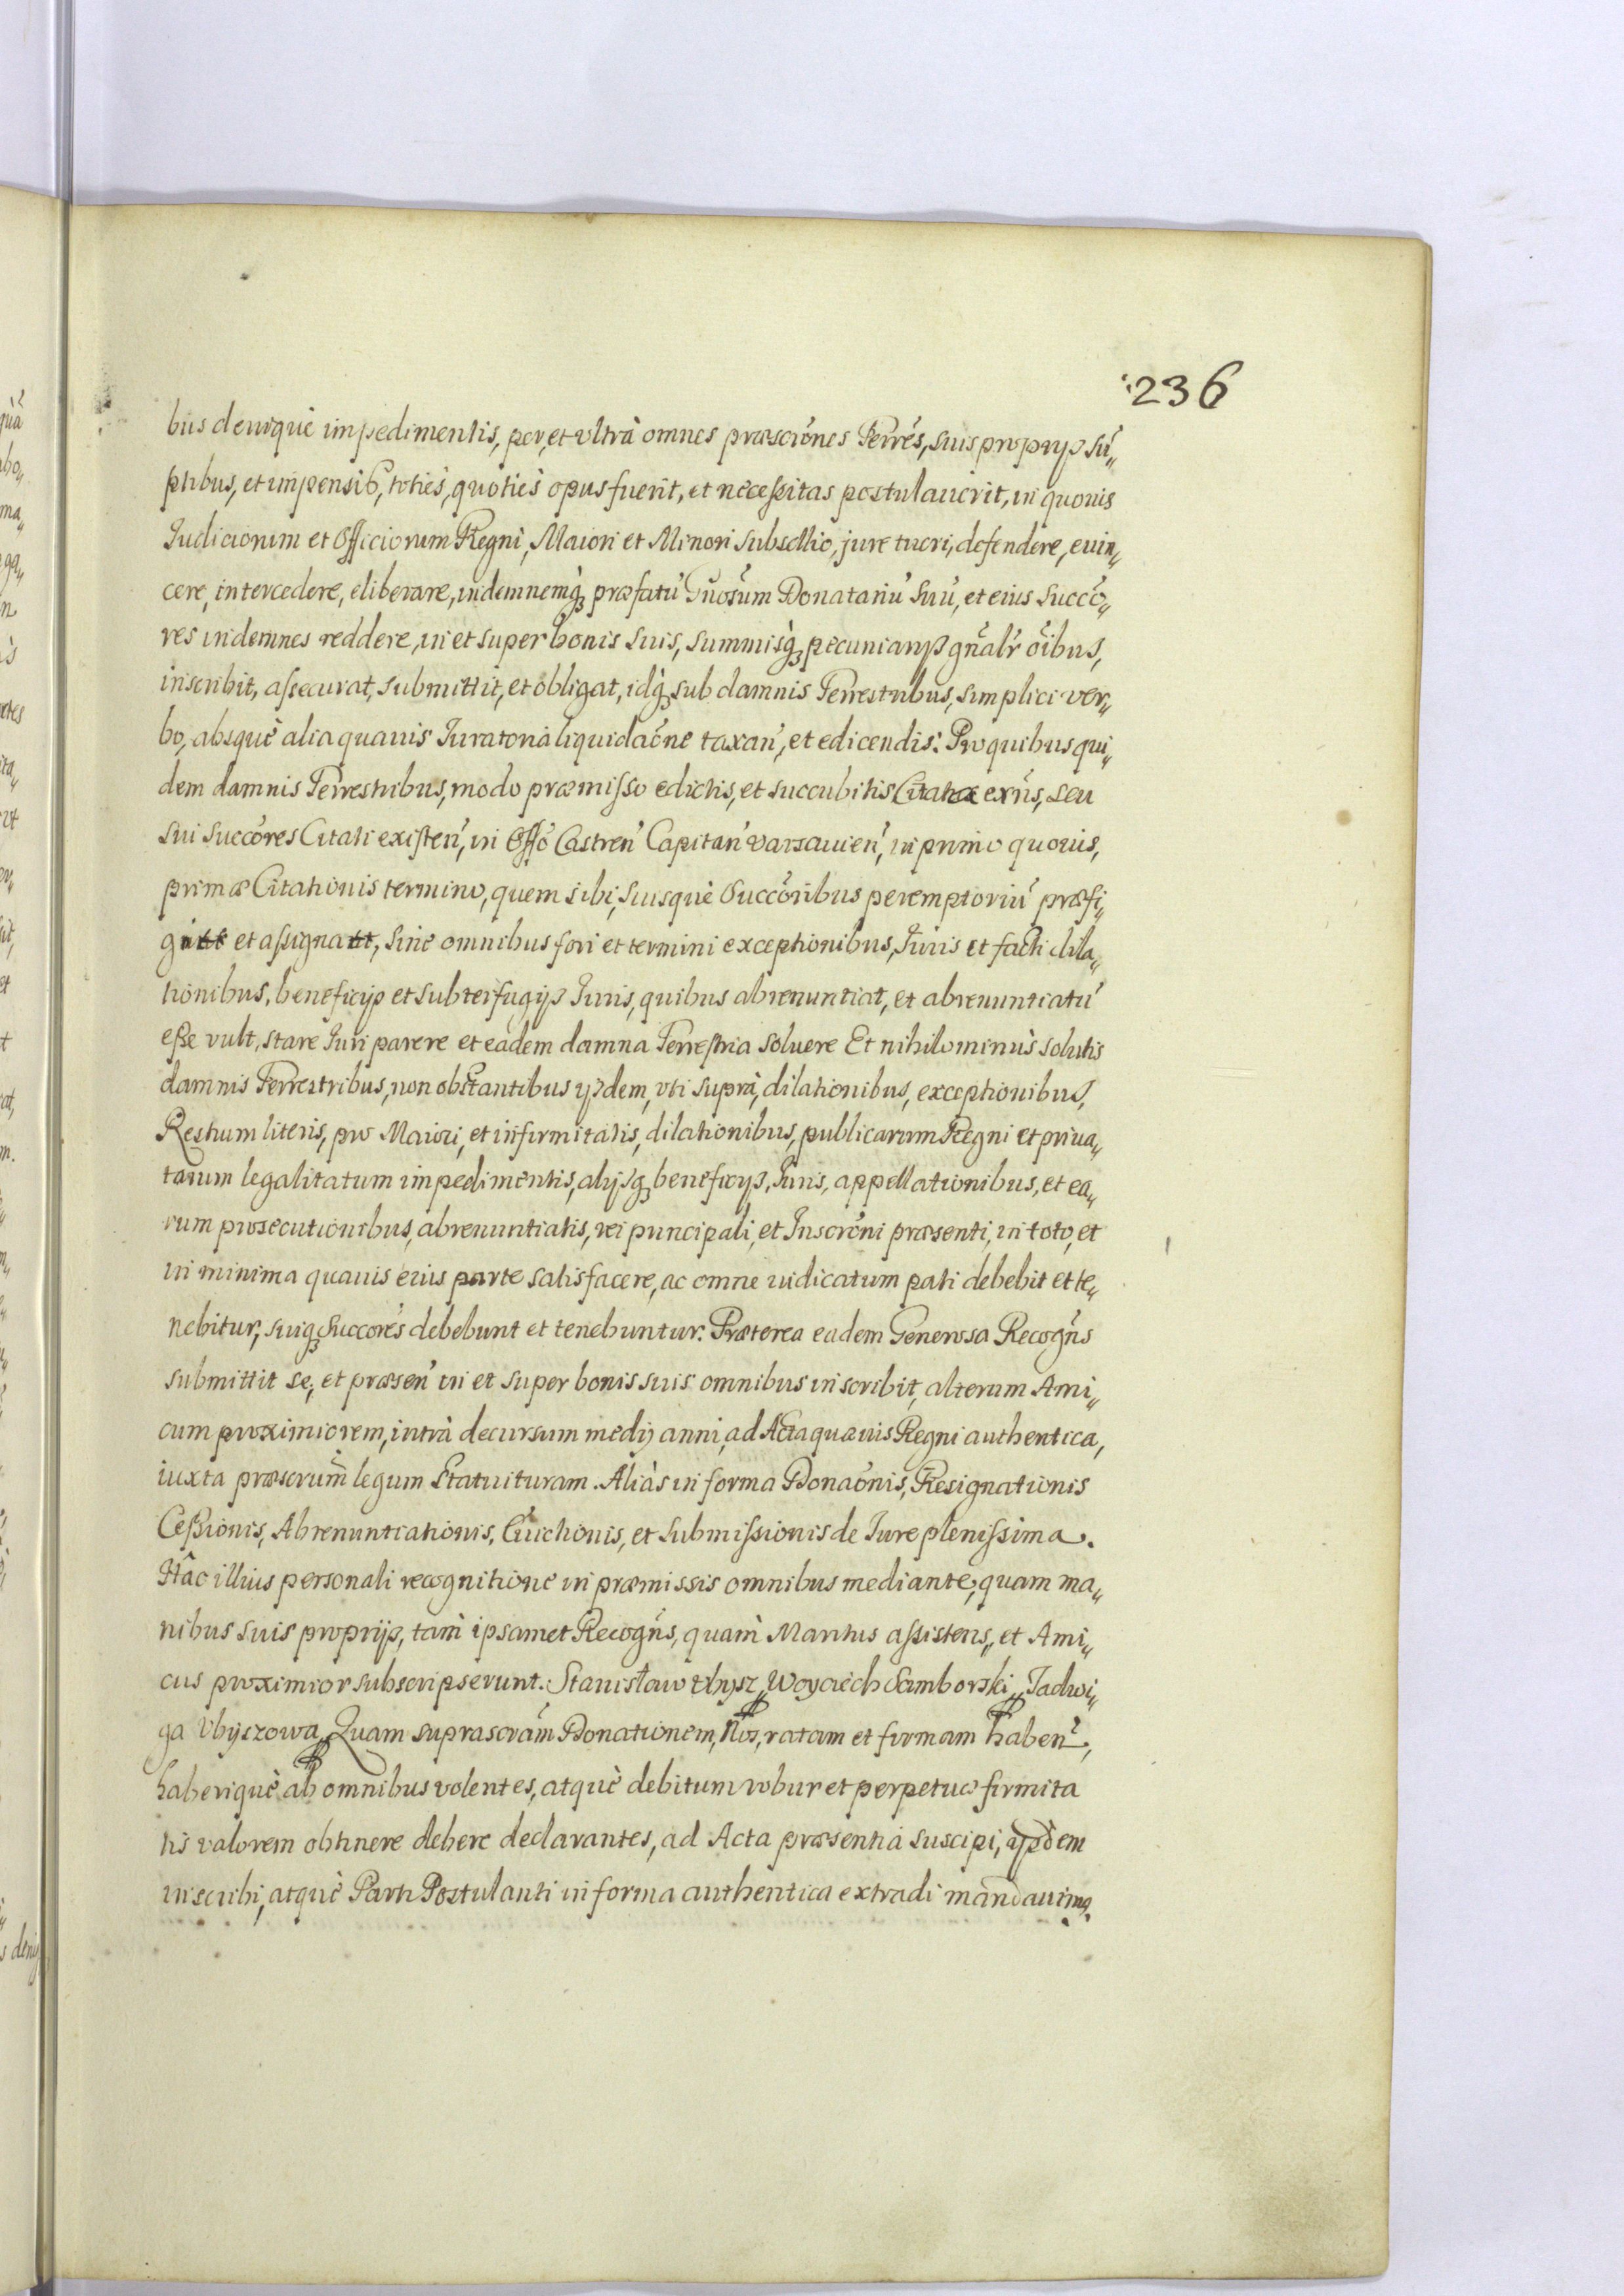 236
bus deniquè impedimentis, per, et vltrà omnes præscrõnes Terrẽs, suis proprijs sũ„
ptibus, et impensis, totiès, quotiès opus fuerit, et necessitas postulauerit, in quouis
Iudiciorum et Officiorum Regni, Maiori et Minori subsellio, jure tueri, defendere, euin„
cere, intercedere, eliberare, indemnemq̃ præfatũ Gñosum Donatariũ suũ, et eius succõ„
res indemnes reddere, in et super bonis suis, summisq̃ pecuniarijs gñalr̃ oĩbus,
inscribit, assecurat, submittit, et obligat, idq̃ sub damnis Terrestribus, simplici ver„
bo, absquè alia quauis Iuratoria liquidaõne taxañ, et edicendis: Pro quibus qui„
dem damnis Terrestribus, modo præmisso edictis, et succubitis Citata exñs, seu
sui succõres Citati existeñ, in Offõ Castreñ Capitañ Varsauieñ, in primo quouis,
primæ Citationis termino, quem sibi, suisquè Succõribus peremptoriũ præfi„
git et assignat, sine omnibus fori et termini exceptionibus, Iuris et facti dila„
tionibus, beneficijs et subterfugijs Iuris, quibus abrenuntiat, et abrenuntiatũ
esse vult, stare Iuri parere et eadem damna Terrestria soluere Et nihilominùs solutis
damnis Terrestribus, non obstantibus ijsdem, vti suprà, dilationibus, exceptionibus,
Restium literis, pro Maiori, et infirmitatis, dilationibus, publicarum Regni et priua„
tarum legalitatum impedimentis, alijsq̃ beneficijs, Iuris, appellationibus, et ea„
rum prosecutionibus, abrenuntiatis, rei principali, et Inscrõni præsenti, in toto, et
in minima quauis eius parte satisfacere, ac omne iudicatum pati debebit et te„
nebitur, suiq̃ Succorẽs debebunt et tenebuntur. Præterea eadem Generosa Recogñs
submittit se, et præseñ in et super bonis suis omnibus inscribit, alterum Ami„
cum proximiorem, intrà decursum medij anni, ad Acta quæuis Regni authentica,
iuxta præscrum̃ legum Statuituram. Aliàs in forma Donaõnis, Resignationis
Cessionis, Abrenuntiationis, Euictionis, et submissionis de Iure plenissima.
Hâc illius personali recognitione in præmissis omnibus mediante, quam ma„
nibus suis proprijs, tam̀ ipsamet Recogñs, quam̀ Maritus assistens, et Ami„
cus proximior subscripserunt. Stanisław Vbysz„ Woyciech Samborski„ Jadwi„
ga Vbyszowa„ Quam suprascrãm Donationem, Nos, ratam et firmam habeñ,
haberiquè ab omnibus volentes, atquè debitum robur et perpetuæ firmita
tis valorem obtinere debere declarantes, ad Acta præsentia suscipi, ijsdem
inscribi, atquè Parti Postulanti in forma authentica extradi mandauimq.